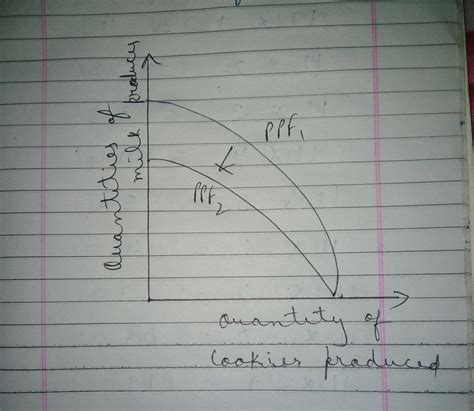 Quantities of
milk produces
PPF₁
PPF₂
Quantity of
Cookies produced